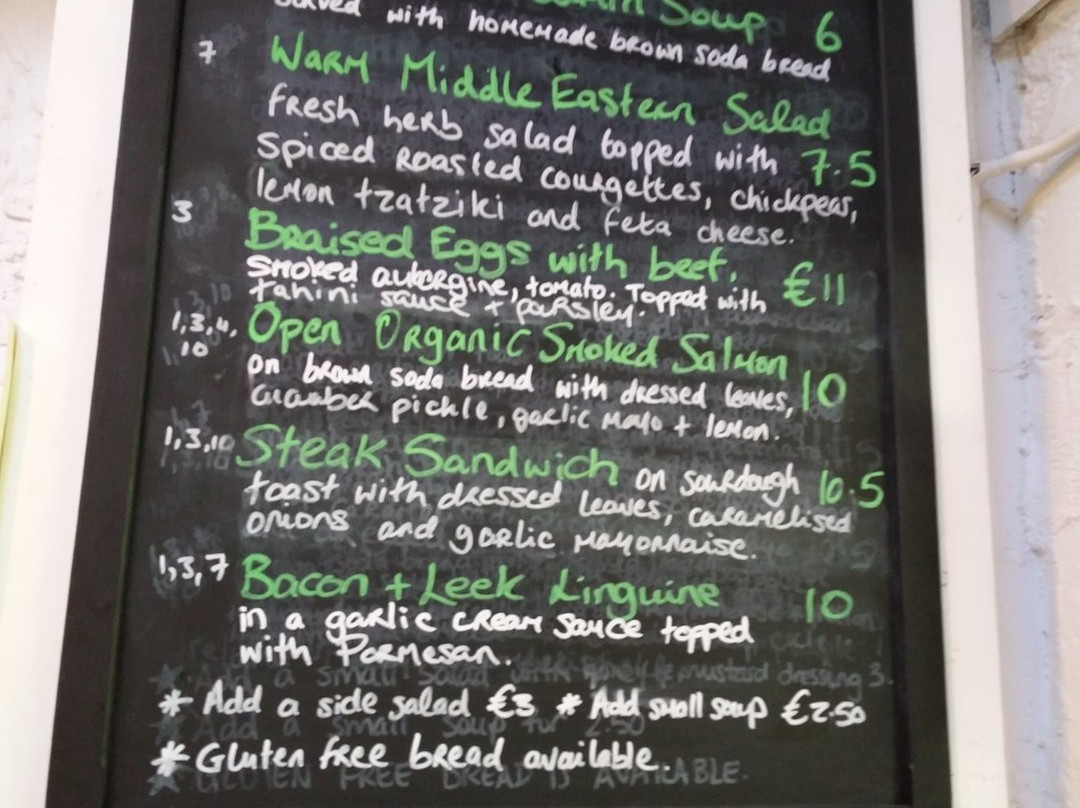 Soup 6
served with homemade brown soda bread
7 Warm Middle Eastern Salad
fresh herb salad topped with 7.5
spiced roasted courgettes, chickpeas,
lemon tzatziki and feta cheese.
3 Braised Eggs with beef, €11
smoked aubergine, tomato. Topped with
tahini sauce + parsley.
1,3,4, Open Organic Smoked Salmon
10 on brown soda bread with dressed leaves, 10
cucumber pickle, garlic mayo + lemon.
1,3,10 Steak Sandwich on sourdough 10.5
toast with dressed leaves, caramelised
onions and garlic mayonnaise.
1,3,7 Bacon + Leek Linguine 10
in a garlic cream sauce topped
with Parmesan.
* Add a side salad €3 * Add small soup €2.50
* Gluten free bread available.